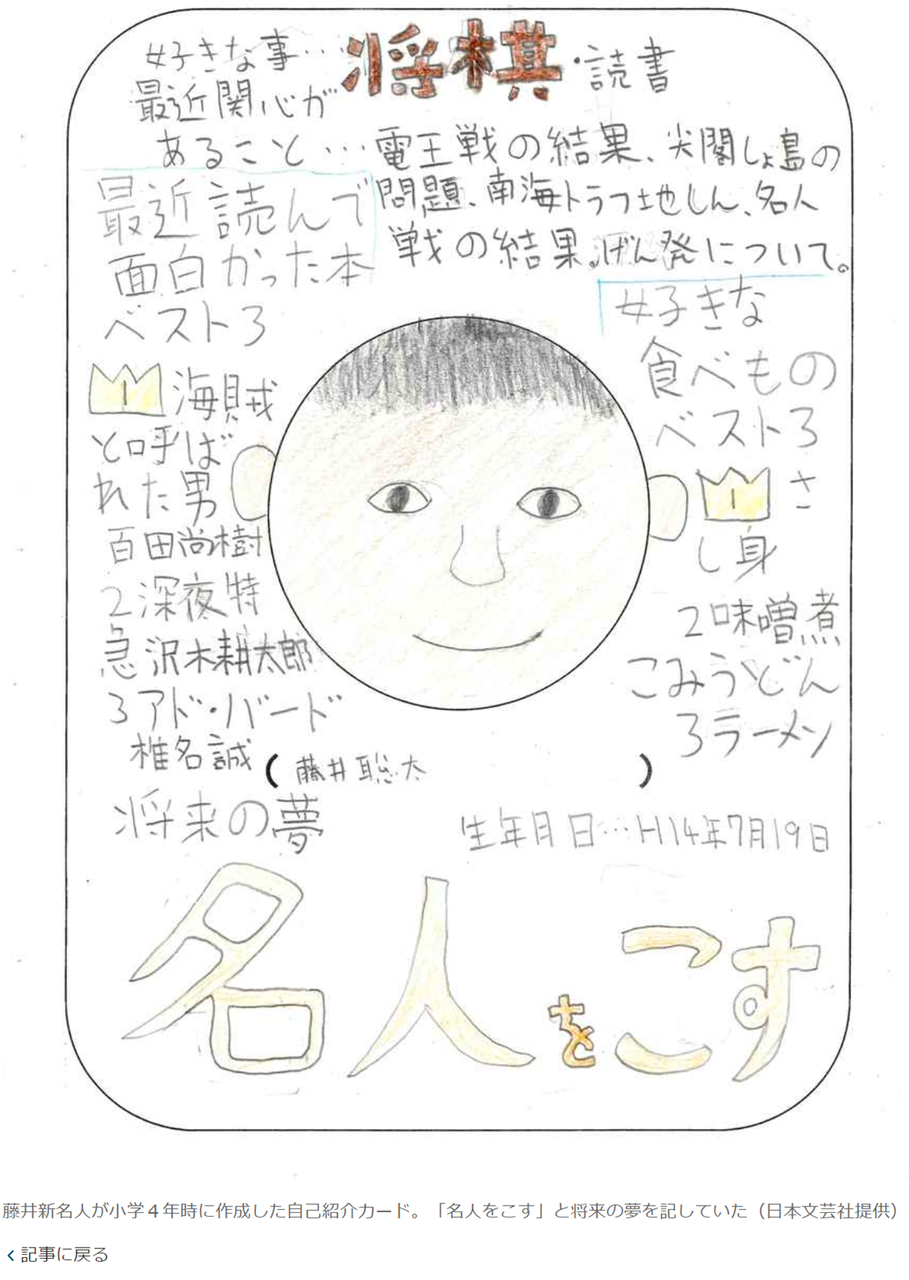 好きな事…将棋・読書
最近関心が
あること…電王戦の結果、尖閣しょ島の
問題、南海トラフ地しん、名人
戦の結果。げん発について。
最近読んで
面白かった本
ベスト3
1 海賊
と呼ば
れた男
百田尚樹
2深夜特
急 沢木耕太郎
3アド・バード
椎名誠
好きな
食べもの
ベスト3
1 さ
し身
2味噌煮
こみうどん
3ラーメン
(藤井聡太)
将来の夢
生年月日…H14年7月19日
名人をこす
藤井新名人が小学4年時に作成した自己紹介カード。「名人をこす」と将来の夢を記していた（日本文芸社提供）
記事に戻る